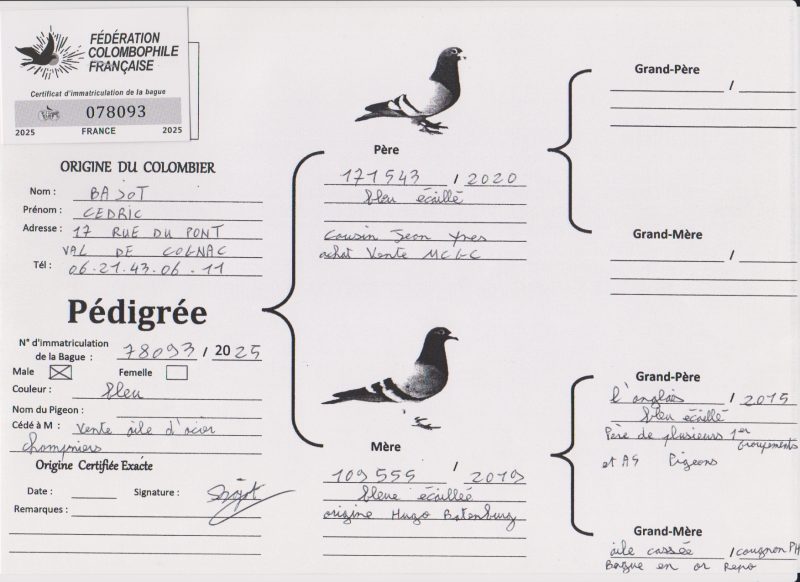 FÉDÉRATION
COLOMBOPHILE
FRANÇAISE
Certificat d'immatriculation de la bague
078093
2025 FRANCE 2025
ORIGINE DU COLOMBIER
Nom : BAJOT
Prénom : CEDRIC
Adresse : 17 RUE DU PONT
VAL DE COGNAC
Tél : 06.21.43.06.11
Pédigrée
N° d'immatriculation
de la Bague : 78093 / 2025
Male Femelle
Couleur : bleu
Nom du Pigeon :
Cédé à M : Vente aile d'acier
Champniers
Origine Certifiée Exacte
Date : Signature :
Remarques :
Père
171543 / 2020
bleu écaillé
Cousin Jean Yves
achat Vente MCGC
Mère
109555 / 2019
bleue écaillée
origine Hugo Batenburg
Grand-Père
/
Grand-Mère
/
Grand-Père
l'anglais / 2015
bleu écaillé
Père de plusieurs 1er groupements
et AS Pigeons
Grand-Mère
aile cassée / cougnon PH
Bague en or Repro